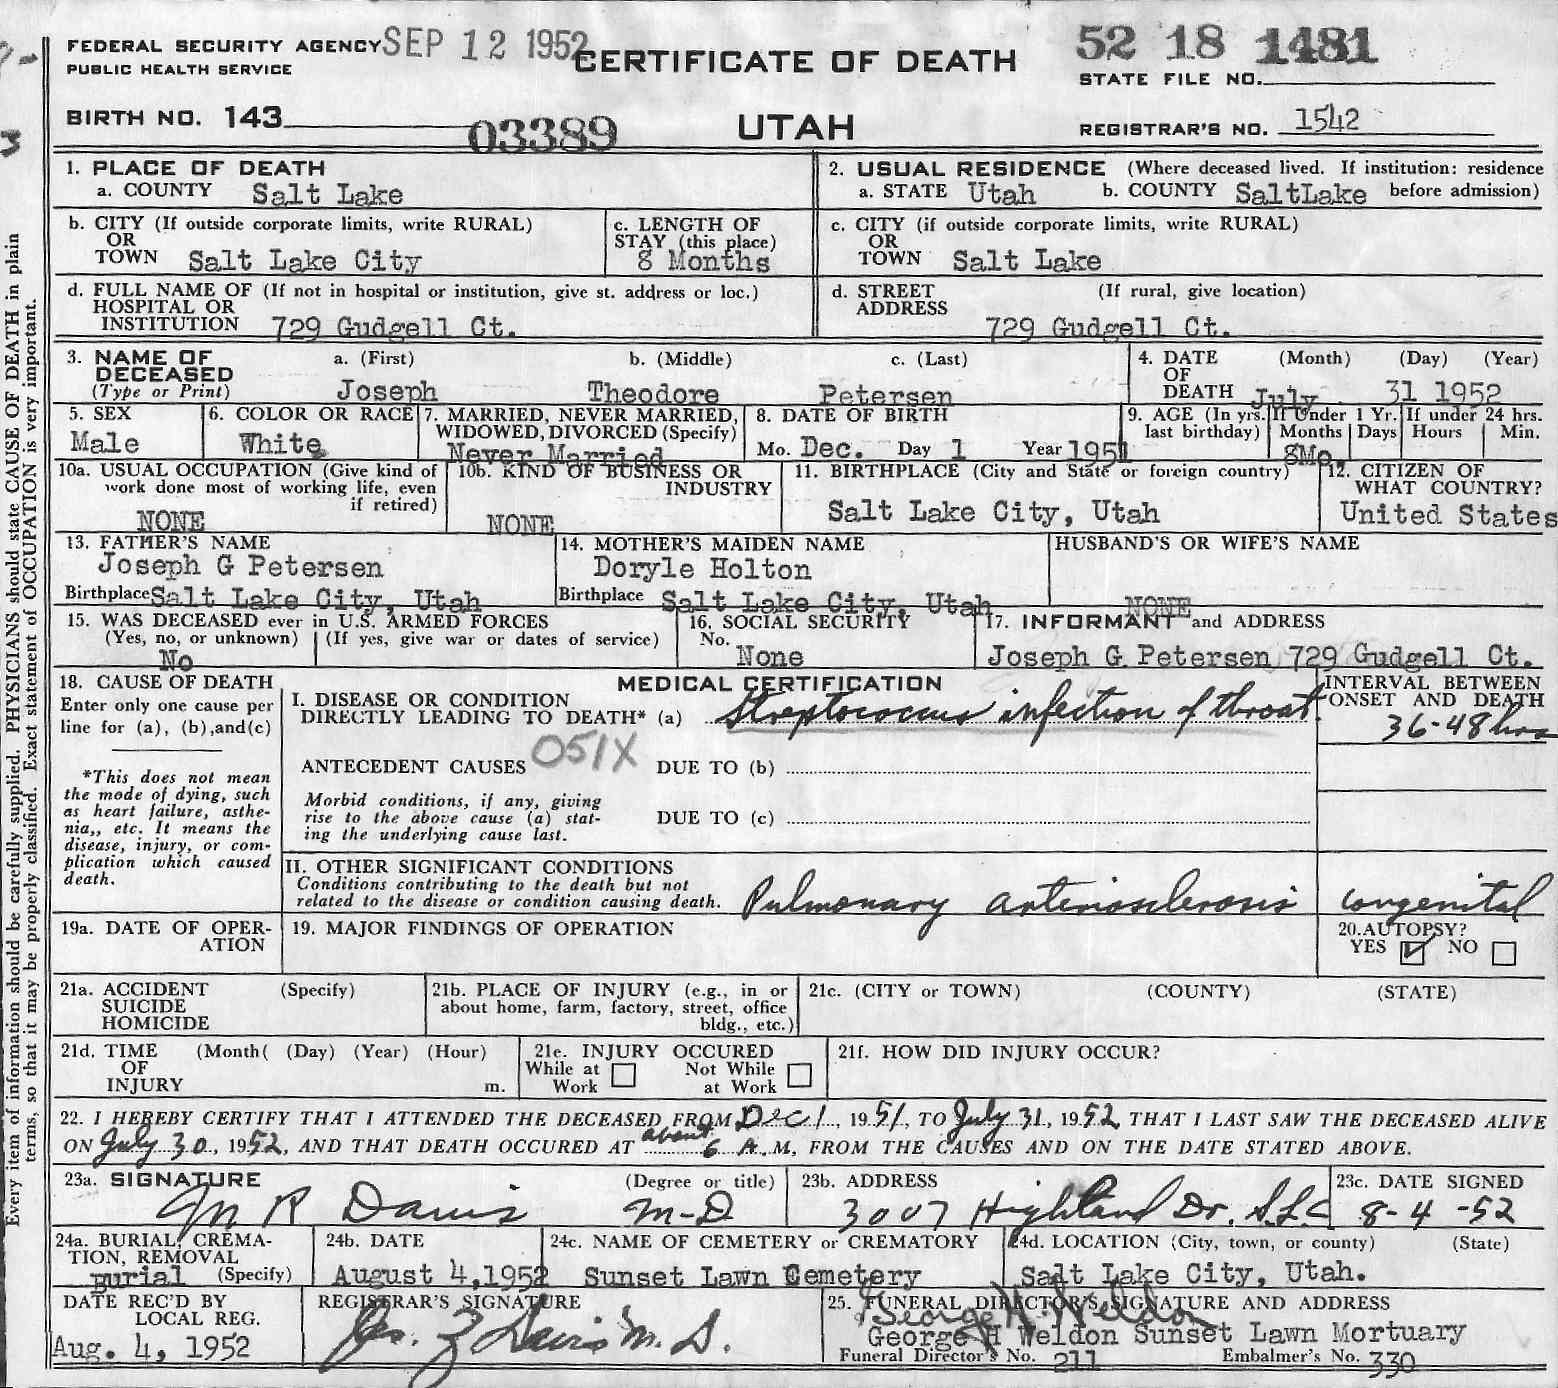 FEDERAL SECURITY AGENCY SEP 12 1952 CERTIFICATE OF DEATH 52 18 1481
PUBLIC HEALTH SERVICE STATE FILE NO.
BIRTH NO. 143 03389 UTAH REGISTRAR'S NO. 1542
1. PLACE OF DEATH
a. COUNTY Salt Lake
2. USUAL RESIDENCE (Where deceased lived. If institution: residence
a. STATE Utah b. COUNTY SaltLake before admission)
b. CITY (If outside corporate limits, write RURAL)
OR
TOWN Salt Lake City
c. LENGTH OF
STAY (this place)
8 Months
c. CITY (if outside corporate limits, write RURAL)
OR
TOWN Salt Lake
d. FULL NAME OF (If not in hospital or institution, give st. address or loc.)
HOSPITAL OR
INSTITUTION 729 Gudgell Ct.
d. STREET (If rural, give location)
ADDRESS
729 Gudgell Ct.
3. NAME OF a. (First) b. (Middle) c. (Last)
DECEASED
(Type or Print) Joseph Theodore Petersen
4. DATE (Month) (Day) (Year)
OF
DEATH July 31 1952
5. SEX
Male
6. COLOR OR RACE
White
7. MARRIED, NEVER MARRIED,
WIDOWED, DIVORCED (Specify)
Never Married
8. DATE OF BIRTH
Mo. Dec. Day 1 Year 1951
9. AGE (In yrs. last birthday)
If Under 1 Yr.
Months Days
8Mo
If under 24 hrs.
Hours Min.
10a. USUAL OCCUPATION (Give kind of
work done most of working life, even
if retired)
NONE
10b. KIND OF BUSINESS OR
INDUSTRY
NONE
11. BIRTHPLACE (City and State or foreign country)
Salt Lake City, Utah
12. CITIZEN OF
WHAT COUNTRY?
United States
13. FATHER'S NAME
Joseph G Petersen
Birthplace Salt Lake City, Utah
14. MOTHER'S MAIDEN NAME
Doryle Holton
Birthplace Salt Lake City, Utah
HUSBAND'S OR WIFE'S NAME
NONE
15. WAS DECEASED ever in U.S. ARMED FORCES
(Yes, no, or unknown) (If yes, give war or dates of service)
No
16. SOCIAL SECURITY
No.
None
17. INFORMANT and ADDRESS
Joseph G. Petersen 729 Gudgell Ct.
18. CAUSE OF DEATH
Enter only one cause per
line for (a), (b),and(c)
*This does not mean
the mode of dying, such
as heart failure, asthe-
nia,, etc. It means the
disease, injury, or com-
plication which caused
death.
MEDICAL CERTIFICATION
I. DISEASE OR CONDITION
DIRECTLY LEADING TO DEATH* (a) Streptococcus infection of throat
INTERVAL BETWEEN
ONSET AND DEATH
36-48 hrs
051X
ANTECEDENT CAUSES DUE TO (b)
Morbid conditions, if any, giving
rise to the above cause (a) stat-
ing the underlying cause last.
DUE TO (c)
II. OTHER SIGNIFICANT CONDITIONS
Conditions contributing to the death but not
related to the disease or condition causing death.
Pulmonary arteriosclerosis congenital
19a. DATE OF OPER-
ATION
19. MAJOR FINDINGS OF OPERATION
20. AUTOPSY?
YES ✓ NO
21a. ACCIDENT (Specify)
SUICIDE
HOMICIDE
21b. PLACE OF INJURY (e.g., in or
about home, farm, factory, street, office
bldg., etc.)
21c. (CITY or TOWN) (COUNTY) (STATE)
21d. TIME (Month( (Day) (Year) (Hour)
OF
INJURY m.
21e. INJURY OCCURED
While at Not While
Work at Work
21f. HOW DID INJURY OCCUR?
22. I HEREBY CERTIFY THAT I ATTENDED THE DECEASED FROM Dec 1, 1951, TO July 31, 1952, THAT I LAST SAW THE DECEASED ALIVE
ON July 30, 1952, AND THAT DEATH OCCURED AT about 6 A.M, FROM THE CAUSES AND ON THE DATE STATED ABOVE.
23a. SIGNATURE (Degree or title)
M R Davis M-D
23b. ADDRESS
3007 Highland Dr. S.L.C
23c. DATE SIGNED
8-4-52
24a. BURIAL, CREMA-
TION, REMOVAL
Burial (Specify)
24b. DATE
August 4,1952
24c. NAME OF CEMETERY or CREMATORY
Sunset Lawn Cemetery
24d. LOCATION (City, town, or county) (State)
Salt Lake City, Utah.
DATE REC'D BY
LOCAL REG.
Aug. 4, 1952
REGISTRAR'S SIGNATURE
Davis M.D.
25. FUNERAL DIRECTOR'S SIGNATURE AND ADDRESS
George H. Weldon
George H Weldon Sunset Lawn Mortuary
Funeral Director's No. 211 Embalmer's No. 330
Every item of information should be carefully supplied. PHYSICIANS should state CAUSE OF DEATH in plain
terms, so that it may be properly classified. Exact statement of OCCUPATION is very important.